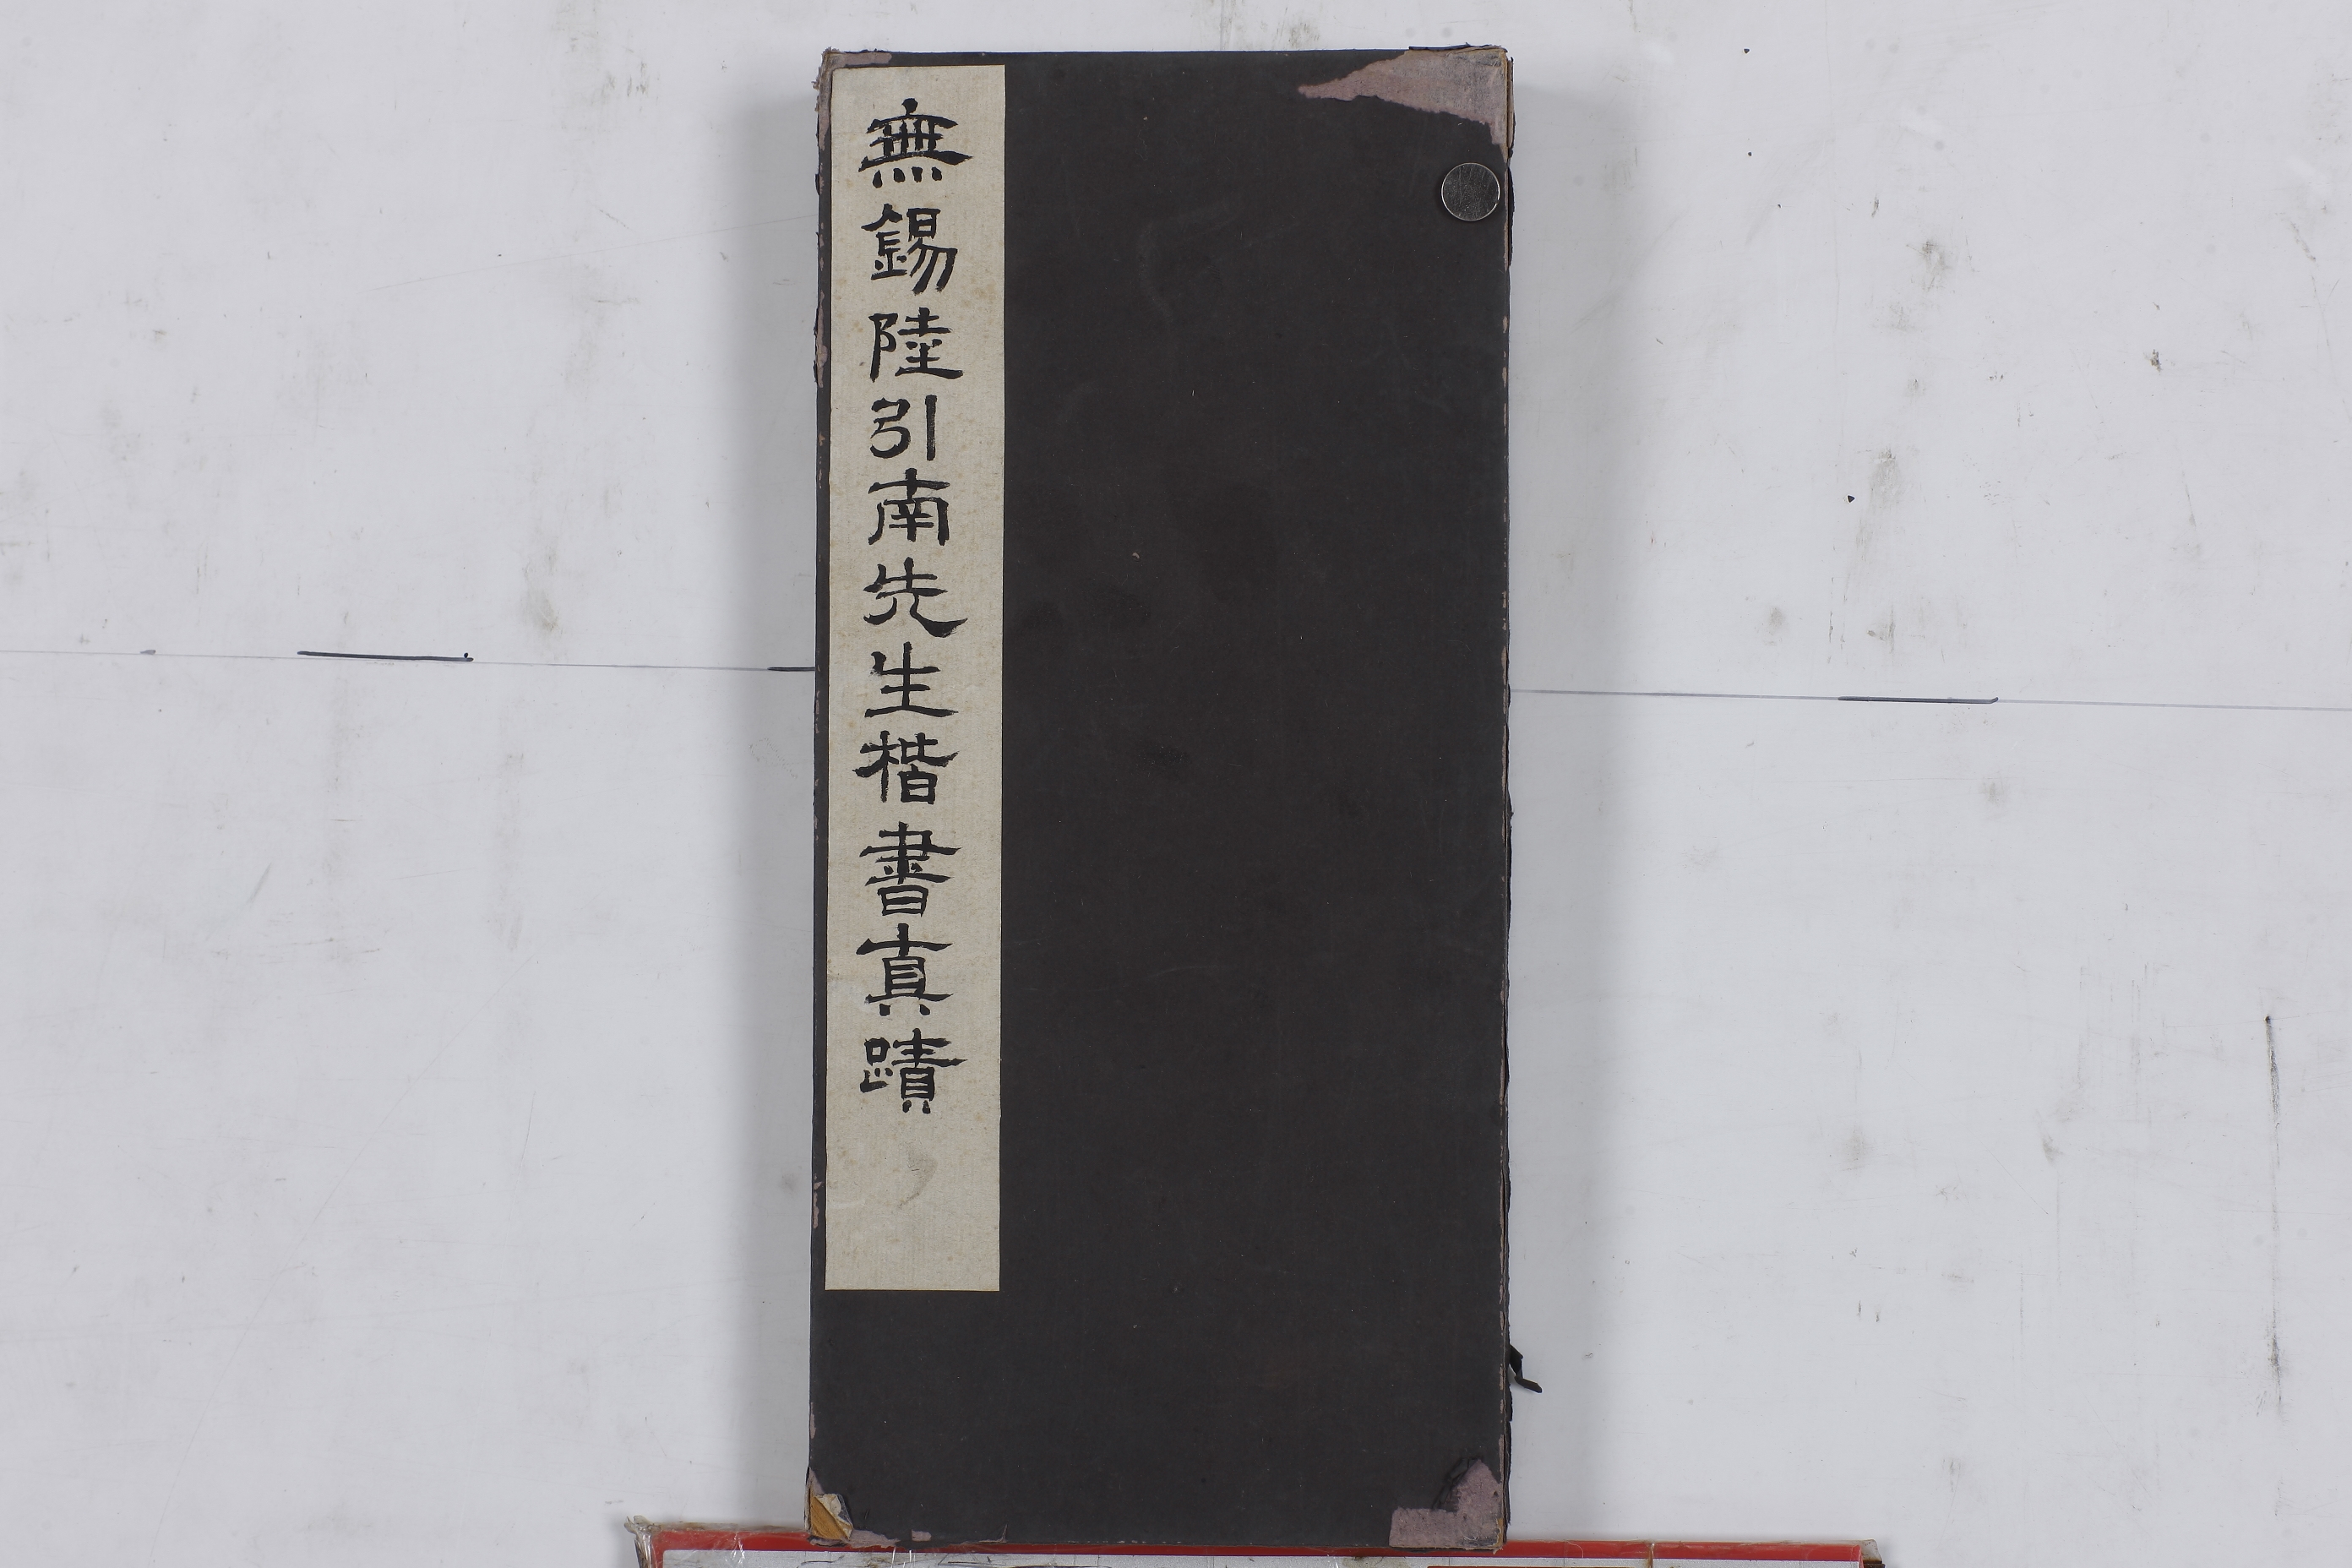 無錫陸引南先生楷書真蹟